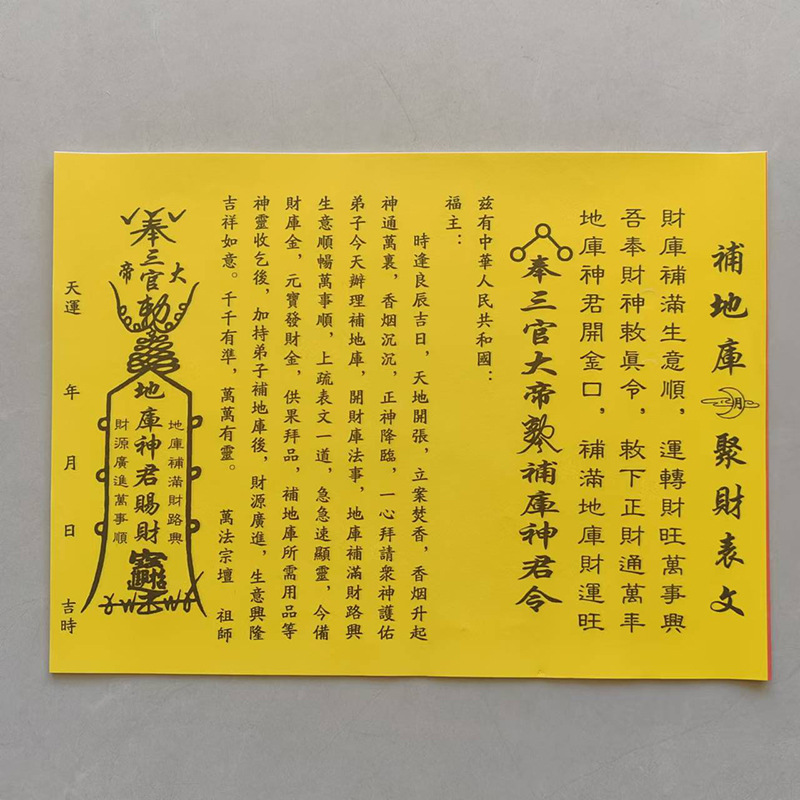 補地庫 月 聚財表文
財庫補滿生意順，運轉財旺萬事興
吾奉財神敕真令，敕下正財通萬年
地庫神君開金口，補滿地庫財運旺
奉三官大帝敕補庫神君令
兹有中華人民共和國：
福主：
時逢良辰吉日，天地開張，立案焚香，香烟升起
神通萬裏，香烟沉沉，正神降臨，一心拜請衆神護佑
弟子今天辦理補地庫，開財庫法事，地庫補滿財路興
生意順暢萬事順，上疏表文一道，急急速顯靈，今備
財庫金，元寶發財金，供果拜品，補地庫所需用品等
神靈收乞後，加持弟子補地庫後，財源廣進，生意興隆
吉祥如意。千千有準，萬萬有靈。 萬法宗壇 祖師
奉
三官大帝
勅
地庫神君賜財
地庫補滿財路興
財源廣進萬事順
天運 年 月 日 吉時